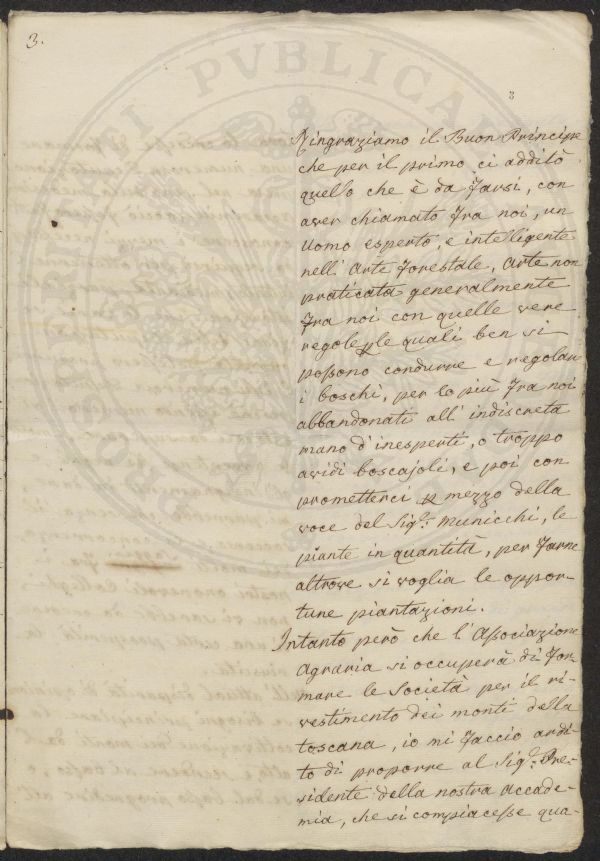 3.
8
Ringraziamo il Buon Principe
che per il primo ci additò
quello che è da farsi, con
aver chiamato fra noi, un
uomo esperto, e intelligente
nell' Arte forestale, Arte non
praticata generalmente
fra noi con quelle vere
regole le quali ben si
possono condurre e regolare
i boschi, per lo più fra noi
abbandonati all' indiscreta
mano d' inesperti, o troppo
avidi boscajoli, e poi con
prometterci mezzo della
voce del Sig.r: Municchi, le
piante in quantità, per farne
altrove si voglia le oppor-
tune piantazioni.
Intanto però che l' Associazione
Agraria si occuperà di for-
mare le Società per il ri-
vestimento dei monti della
toscana, io mi faccio ardi-
to di proporre al Sig.r: Pre-
sidente della nostra Accade-
mia, che si compiacesse qua-
PVBLICAE